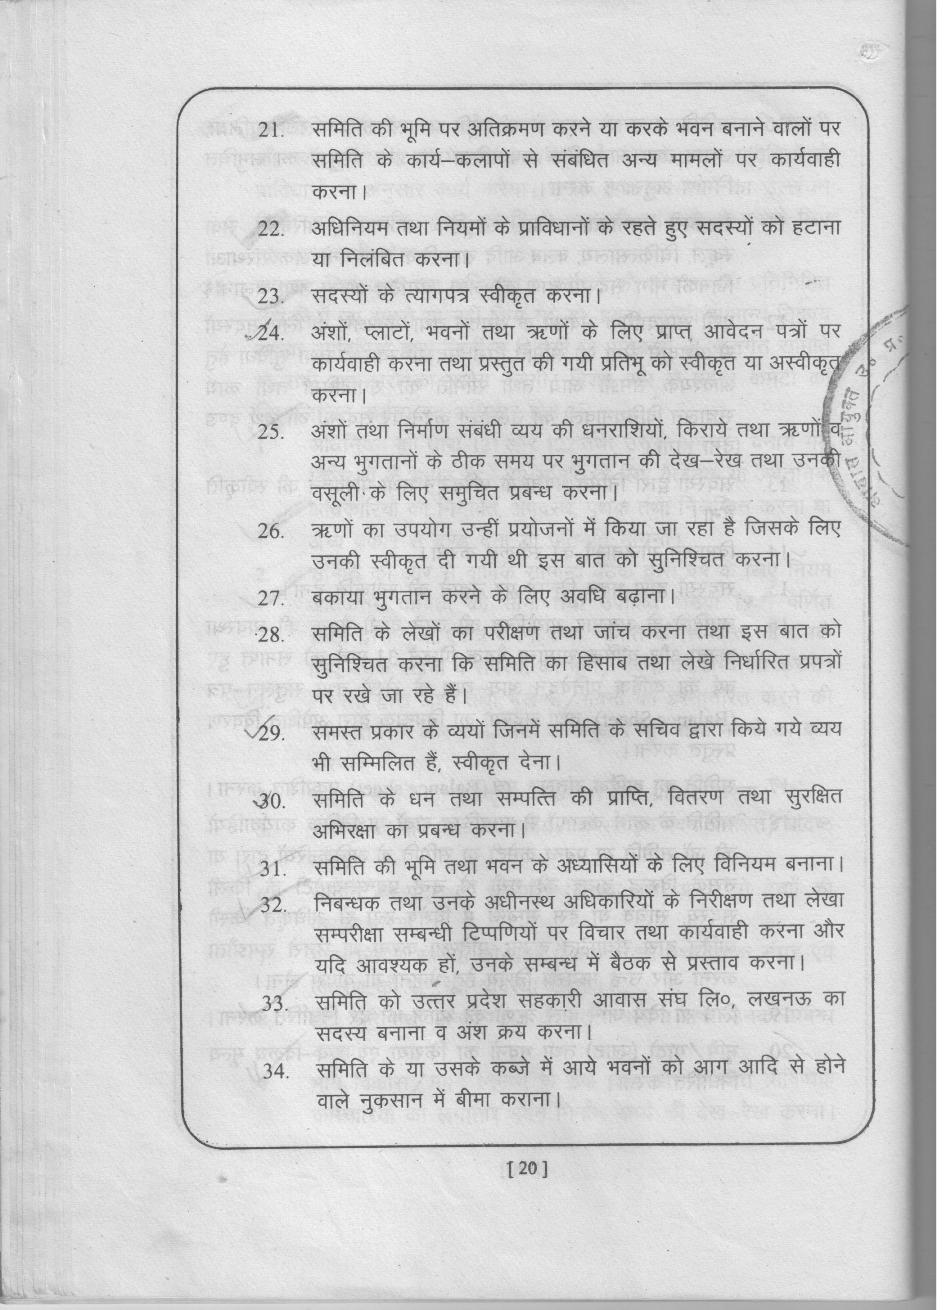 21. समिति की भूमि पर अतिक्रमण करने या करके भवन बनाने वालों पर
समिति के कार्य–कलापों से संबंधित अन्य मामलों पर कार्यवाही
करना।
22. अधिनियम तथा नियमों के प्राविधानों के रहते हुए सदस्यों को हटाना
या निलंबित करना।
23. सदस्यों के त्यागपत्र स्वीकृत करना।
24. अंशों, प्लाटों, भवनों तथा ऋणों के लिए प्राप्त आवेदन पत्रों पर
कार्यवाही करना तथा प्रस्तुत की गयी प्रतिभू को स्वीकृत या अस्वीकृत
करना।
25. अंशों तथा निर्माण संबंधी व्यय की धनराशियों, किराये तथा ऋणों व
अन्य भुगतानों के ठीक समय पर भुगतान की देख–रेख तथा उनकी
वसूली के लिए समुचित प्रबन्ध करना।
26. ऋणों का उपयोग उन्हीं प्रयोजनों में किया जा रहा है जिसके लिए
उनकी स्वीकृत दी गयी थी इस बात को सुनिश्चित करना।
27. बकाया भुगतान करने के लिए अवधि बढ़ाना।
28. समिति के लेखों का परीक्षण तथा जांच करना तथा इस बात को
सुनिश्चित करना कि समिति का हिसाब तथा लेखे निर्धारित प्रपत्रों
पर रखे जा रहे हैं।
29. समस्त प्रकार के व्ययों जिनमें समिति के सचिव द्वारा किये गये व्यय
भी सम्मिलित हैं, स्वीकृत देना।
30. समिति के धन तथा सम्पत्ति की प्राप्ति, वितरण तथा सुरक्षित
अभिरक्षा का प्रबन्ध करना।
31. समिति की भूमि तथा भवन के अध्यासियों के लिए विनियम बनाना।
32. निबन्धक तथा उनके अधीनस्थ अधिकारियों के निरीक्षण तथा लेखा
सम्परीक्षा सम्बन्धी टिप्पणियों पर विचार तथा कार्यवाही करना और
यदि आवश्यक हों, उनके सम्बन्ध में बैठक से प्रस्ताव करना।
33. समिति को उत्तर प्रदेश सहकारी आवास संघ लि०, लखनऊ का
सदस्य बनाना व अंश क्रय करना।
34. समिति के या उसके कब्जे में आये भवनों को आग आदि से होने
वाले नुकसान में बीमा कराना।
[ 20 ]
आयुक्त उ० प्र०